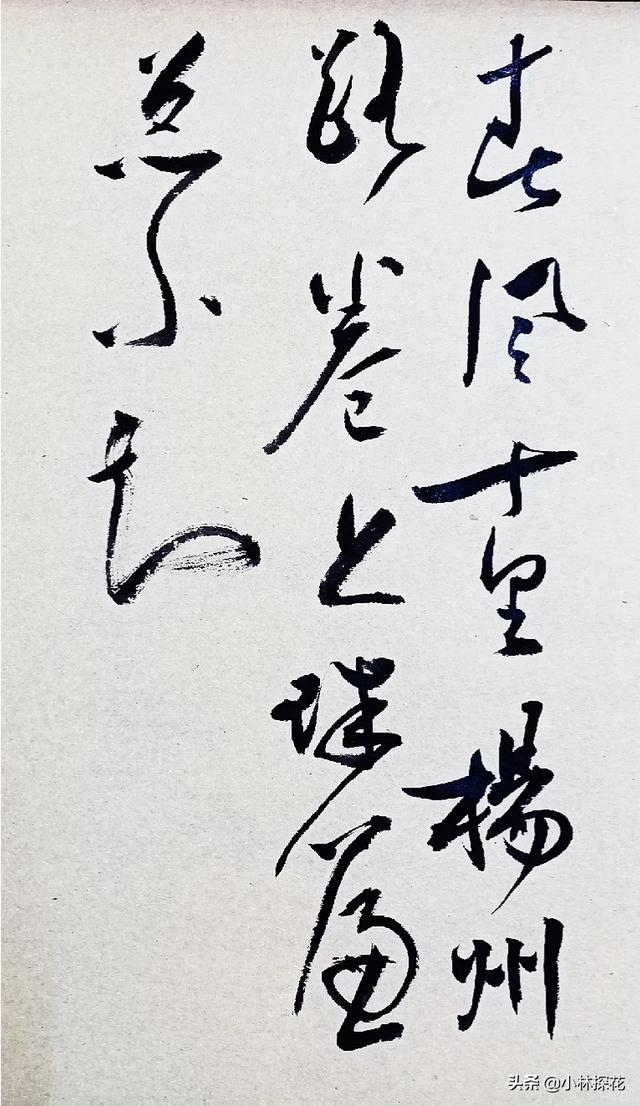 春风十里楊州
路卷上珠簾
总不如
头条 @小林探花